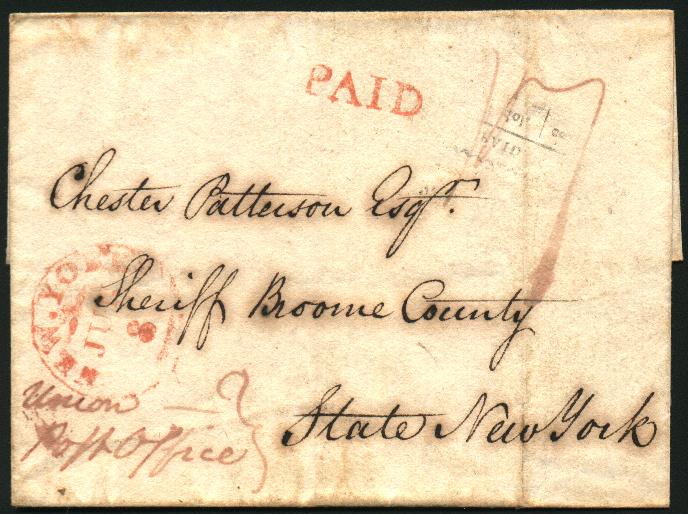 PAID
17
Chester Patterson Esqr.
Sheriff Broome County
State New York
NEW-YO
8
Union
Post Office